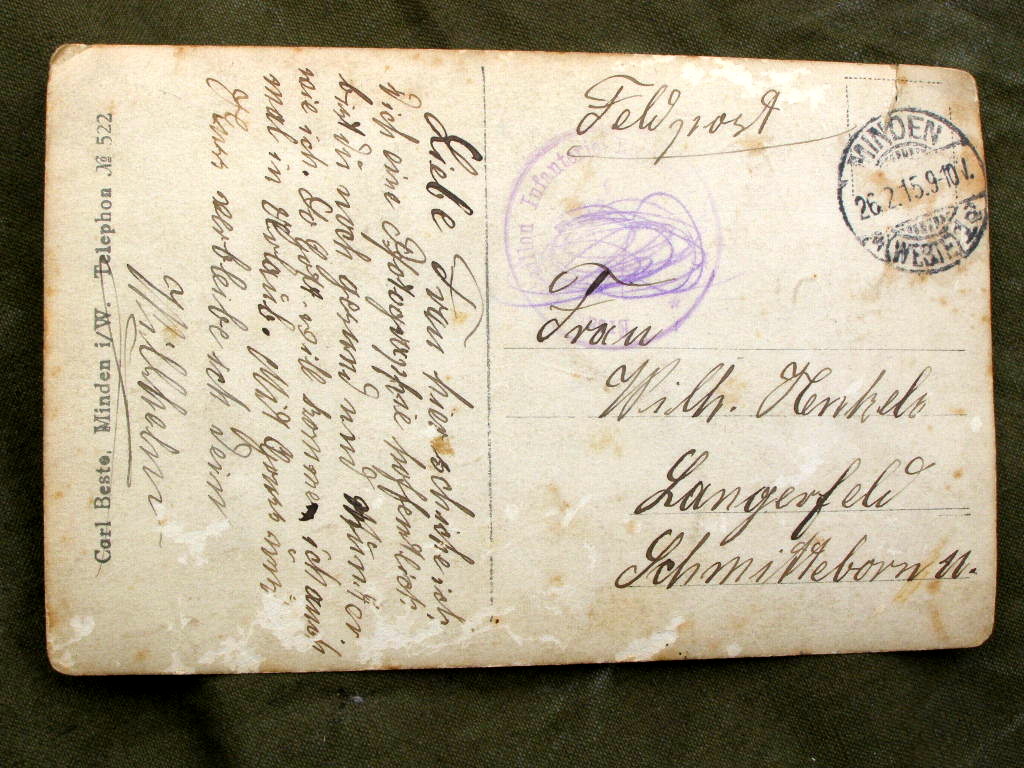 Feldpost
MINDEN
26.2.15.9-10V.
(WESTF)
Bataillon Infanterie
Frau
Wilh. Henkels
Langerfeld
Schmitteborn u.
Liebe Frau hier schicke ich
Dich eine Photographie hoffentlich
bist du noch gesund und Munter.
wie ich. So Gott will komme ich auch
mal in Urlaub. Mit Gruss und
Kuss verbleibe ich dein
Wilhelm
Carl Beste, Minden i/W. Telephon № 522